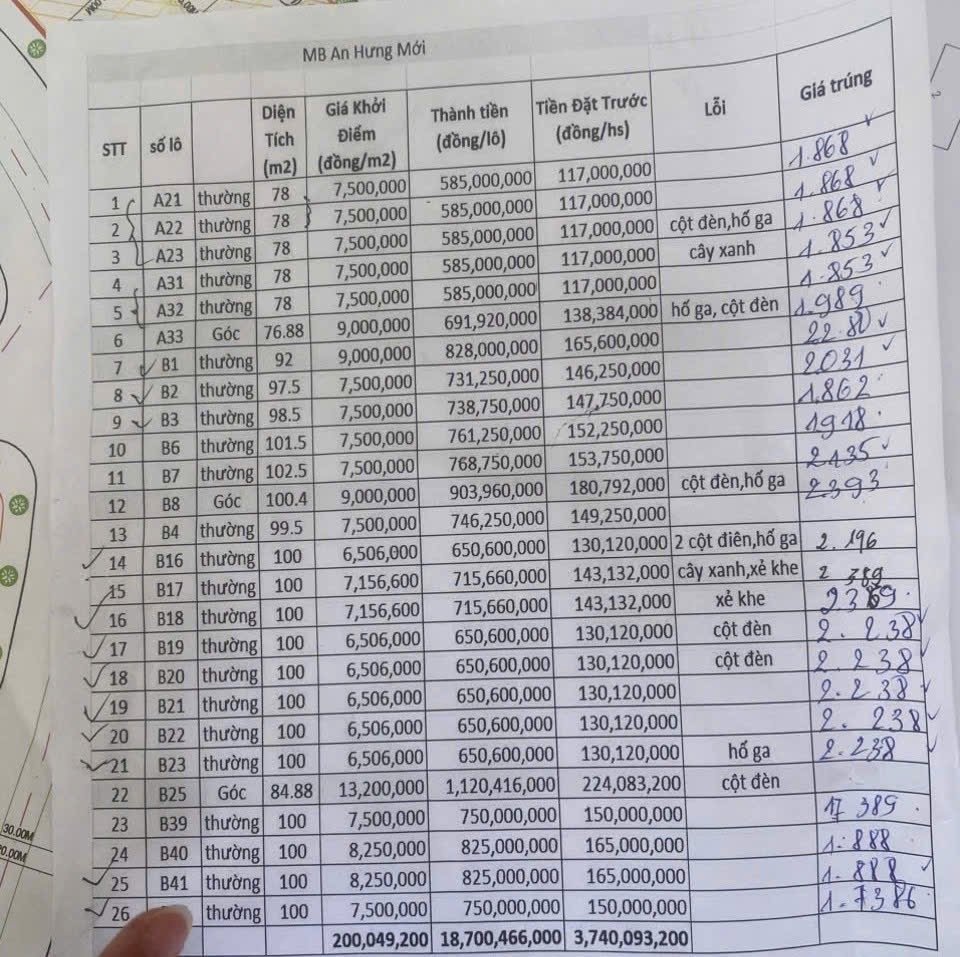 MB An Hưng Mới
STT số lô Diện Tích (m2) Giá Khởi Điểm (đồng/m2) Thành tiền (đồng/lô) Tiền Đặt Trước (đồng/hs) Lỗi Giá trúng
1 A21 thường 78 7,500,000 585,000,000 117,000,000 1.868
2 A22 thường 78 7,500,000 585,000,000 117,000,000 1.868
3 A23 thường 78 7,500,000 585,000,000 117,000,000 cột đèn,hố ga 1.868
4 A31 thường 78 7,500,000 585,000,000 117,000,000 cây xanh 1.853
5 A32 thường 78 7,500,000 585,000,000 117,000,000 1.853
6 A33 Góc 76.88 9,000,000 691,920,000 138,384,000 hố ga, cột đèn 1.989
7 B1 thường 92 9,000,000 828,000,000 165,600,000 22.80
8 B2 thường 97.5 7,500,000 731,250,000 146,250,000 2031
9 B3 thường 98.5 7,500,000 738,750,000 147,750,000 1.862
10 B6 thường 101.5 7,500,000 761,250,000 152,250,000 1918
11 B7 thường 102.5 7,500,000 768,750,000 153,750,000 2135
12 B8 Góc 100.4 9,000,000 903,960,000 180,792,000 cột đèn,hố ga 2393
13 B4 thường 99.5 7,500,000 746,250,000 149,250,000
14 B16 thường 100 6,506,000 650,600,000 130,120,000 2 cột điên,hố ga 2.196
15 B17 thường 100 7,156,600 715,660,000 143,132,000 cây xanh,xẻ khe 2 389
16 B18 thường 100 7,156,600 715,660,000 143,132,000 xẻ khe 2389
17 B19 thường 100 6,506,000 650,600,000 130,120,000 cột đèn 2.238
18 B20 thường 100 6,506,000 650,600,000 130,120,000 cột đèn 2.238
19 B21 thường 100 6,506,000 650,600,000 130,120,000 2.238
20 B22 thường 100 6,506,000 650,600,000 130,120,000 2.238
21 B23 thường 100 6,506,000 650,600,000 130,120,000 hố ga 2.238
22 B25 Góc 84.88 13,200,000 1,120,416,000 224,083,200 cột đèn
23 B39 thường 100 7,500,000 750,000,000 150,000,000 389
24 B40 thường 100 8,250,000 825,000,000 165,000,000 1.888
25 B41 thường 100 8,250,000 825,000,000 165,000,000 1.888
26 thường 100 7,500,000 750,000,000 150,000,000
200,049,200 18,700,466,000 3,740,093,200
30.00M